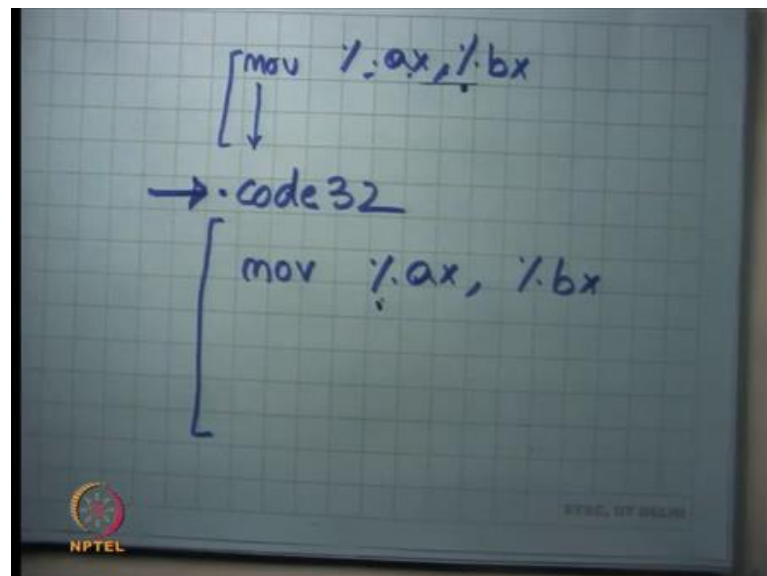 mov %ax, %bx
.code32
mov %ax, %bx
NPTEL
ETSC, IIT DELHI